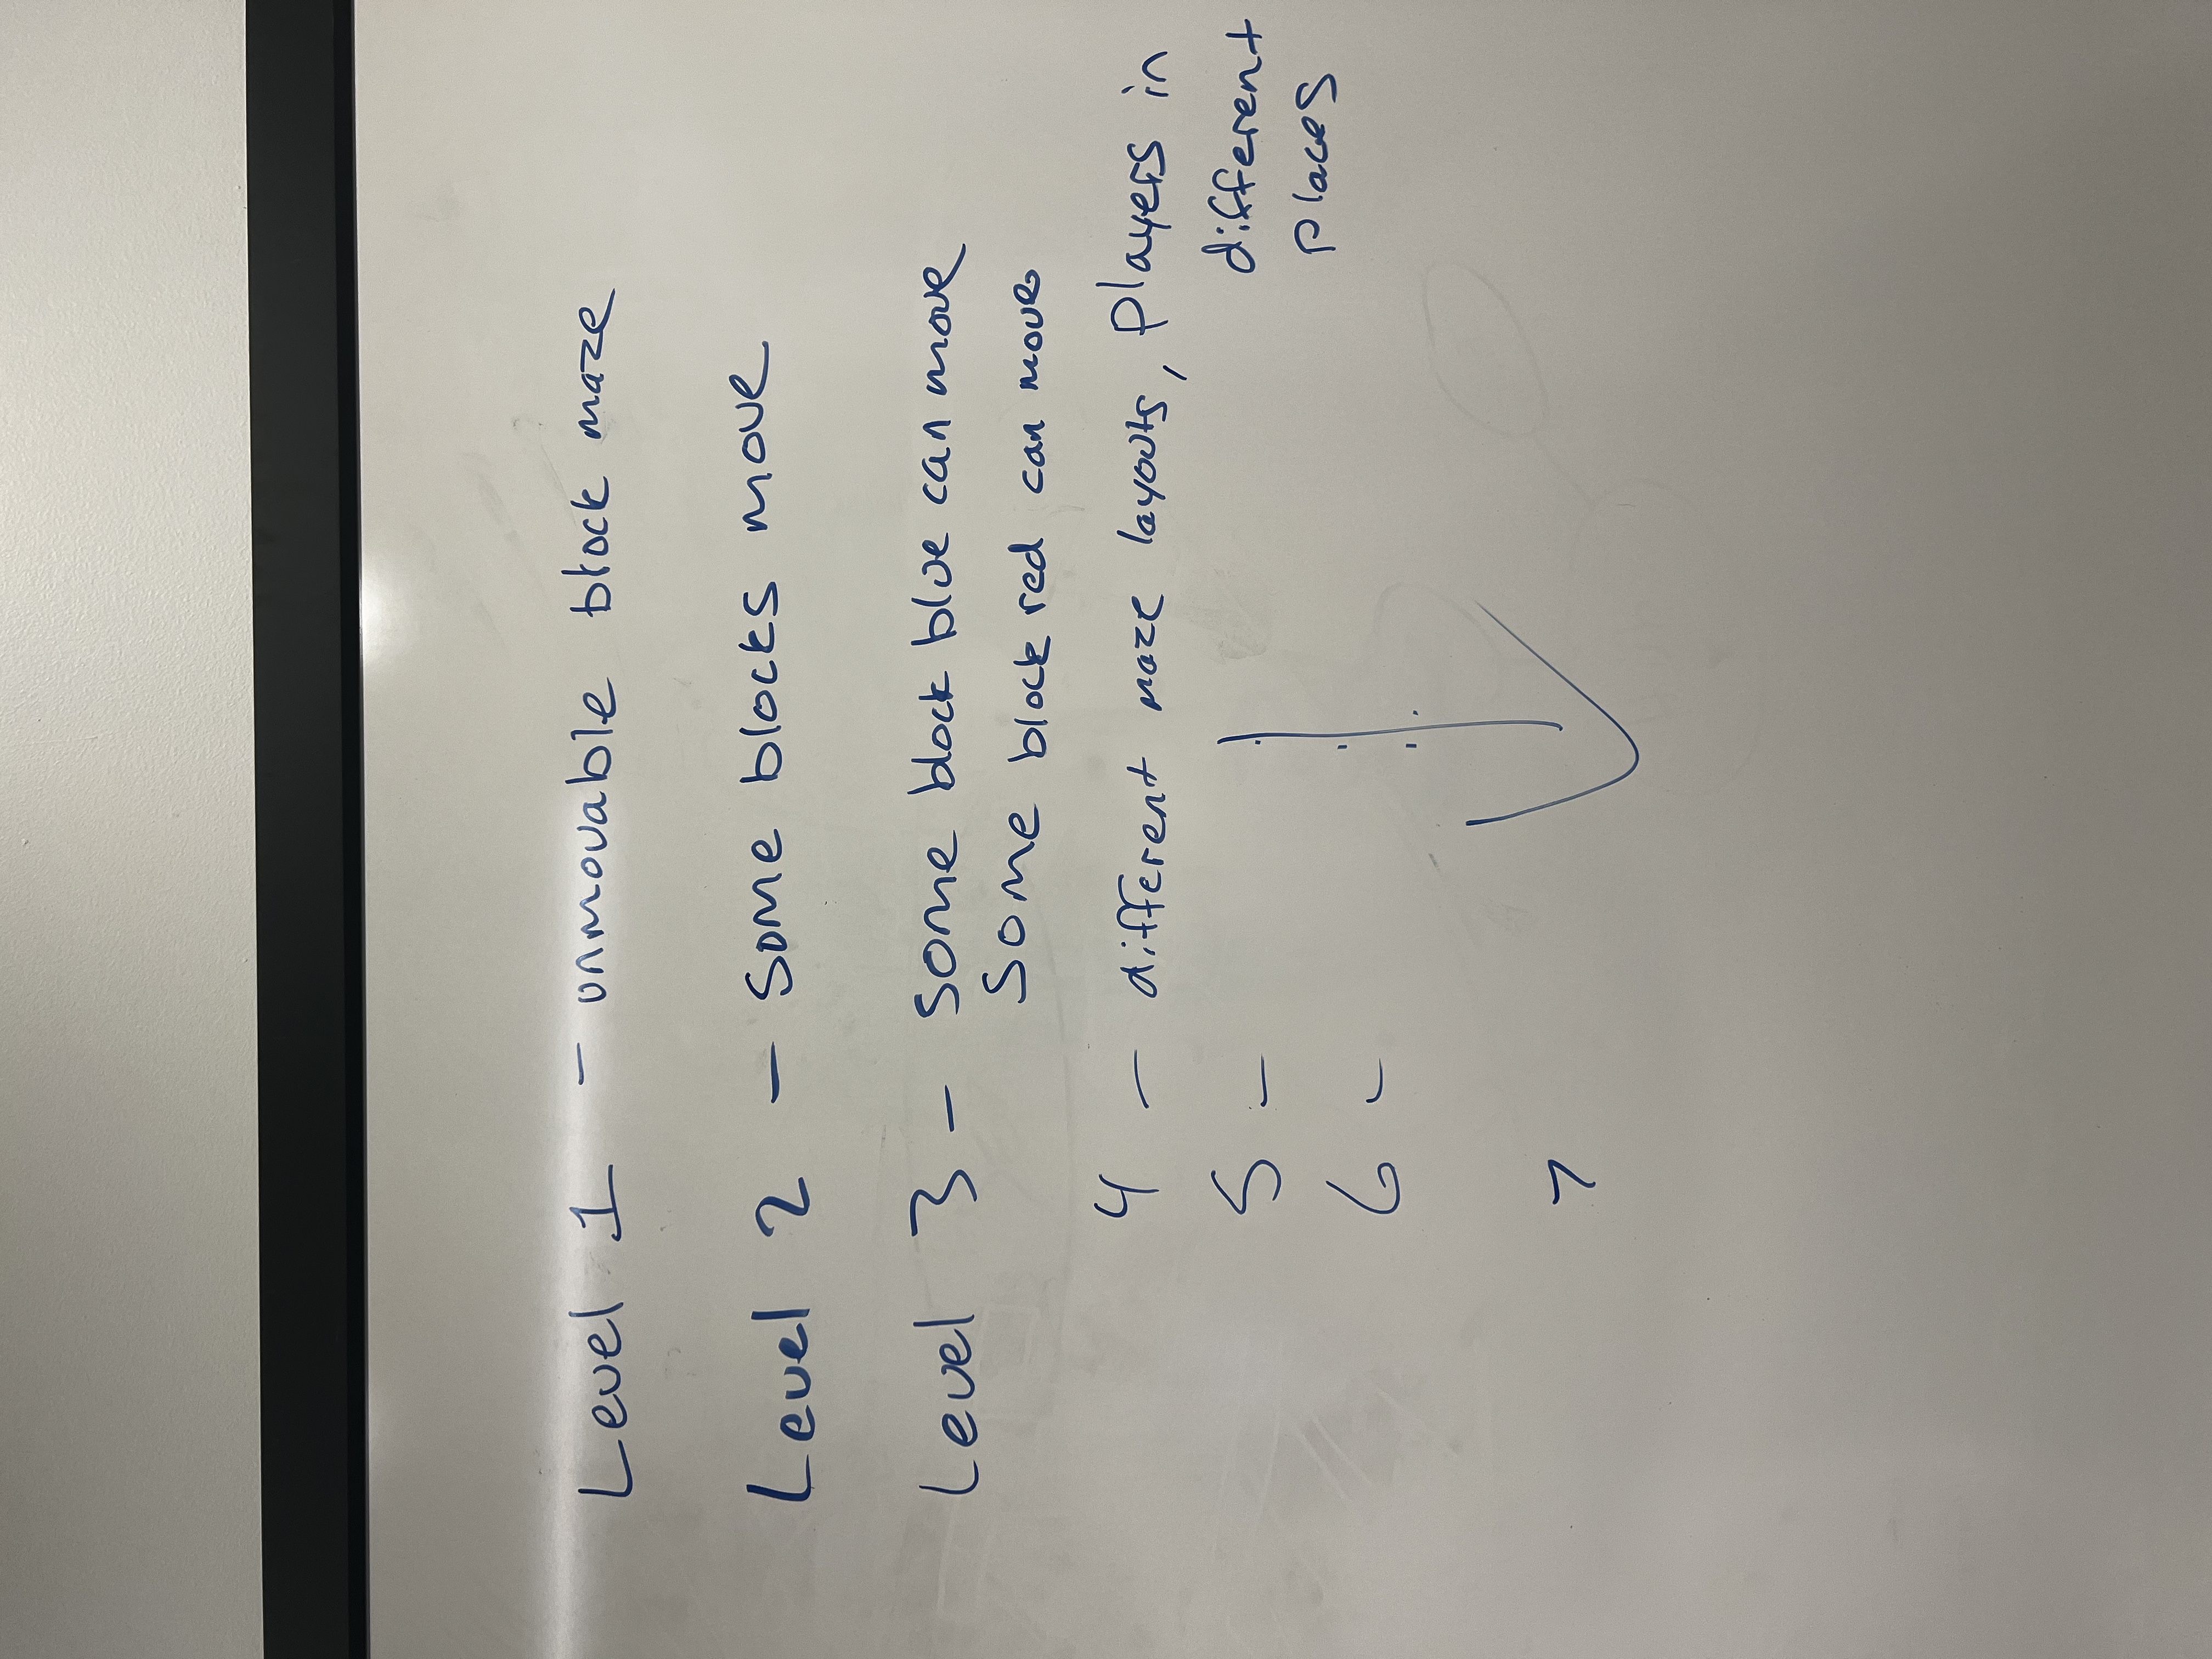 Level 1 - unmovable block maze
Level 2 - some blocks move
Level 3 - some block blue can move
some block red can move
4 - different maze layouts, players in
different
places
5 -
6 -
7